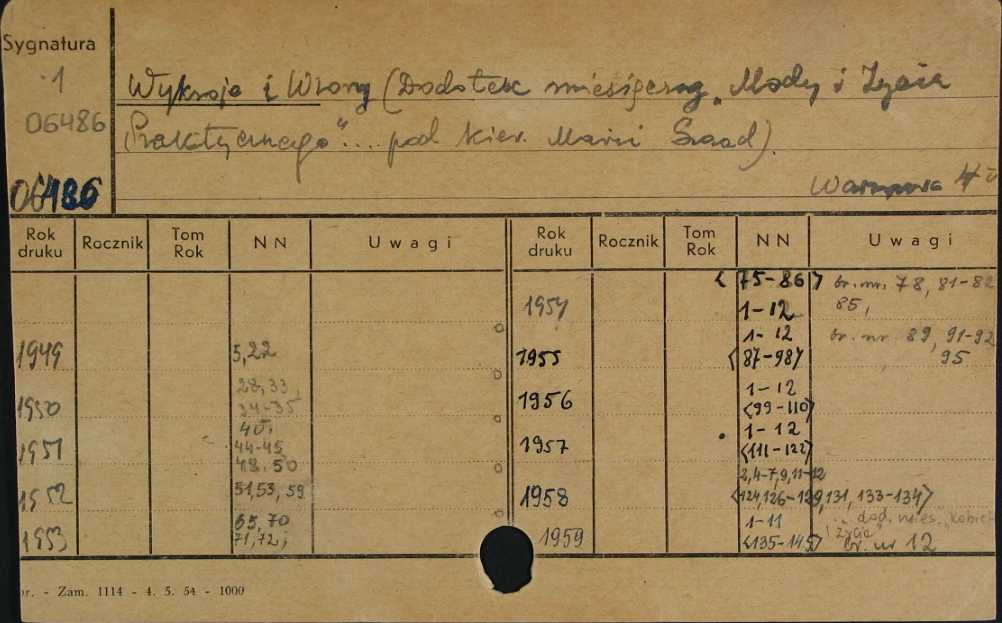 Sygnatura
1
06486
06486
Wykroje i Wzory (Dodatek miesięczny „Mody i Życia
Praktycznego".... pod kier. Marii
Warszawa 4°
Rok druku Rocznik Tom Rok NN Uwagi
1949 5,22
1950 28,33, 34-35, 40,
1951 44-45, 48. 50
1952 51,53, 59
1953 65, 70 71,72;
Rok druku Rocznik Tom Rok NN Uwagi
<75-86> br. nr. 78, 81-82
1954 1-12 85,
1-12 br. nr 89, 91-92
1955 <87-98> 95
1-12
1956 <99-110>
1-12
1957 <111-122>
2,4-7,9,11-12
1958 <124,126-129,131,133-134>
1-11 dod. mies. „Kobieta
1959 <135-145> i życie" br. nr 12
Zam. 1114 - 4. 5. 54 - 1000